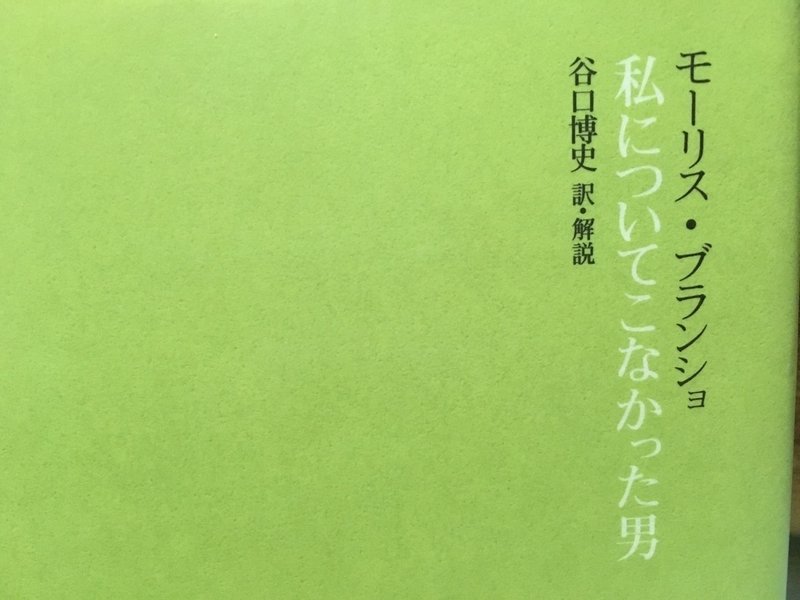 モーリス・ブランショ
私についてこなかった男
谷口博史 訳・解説